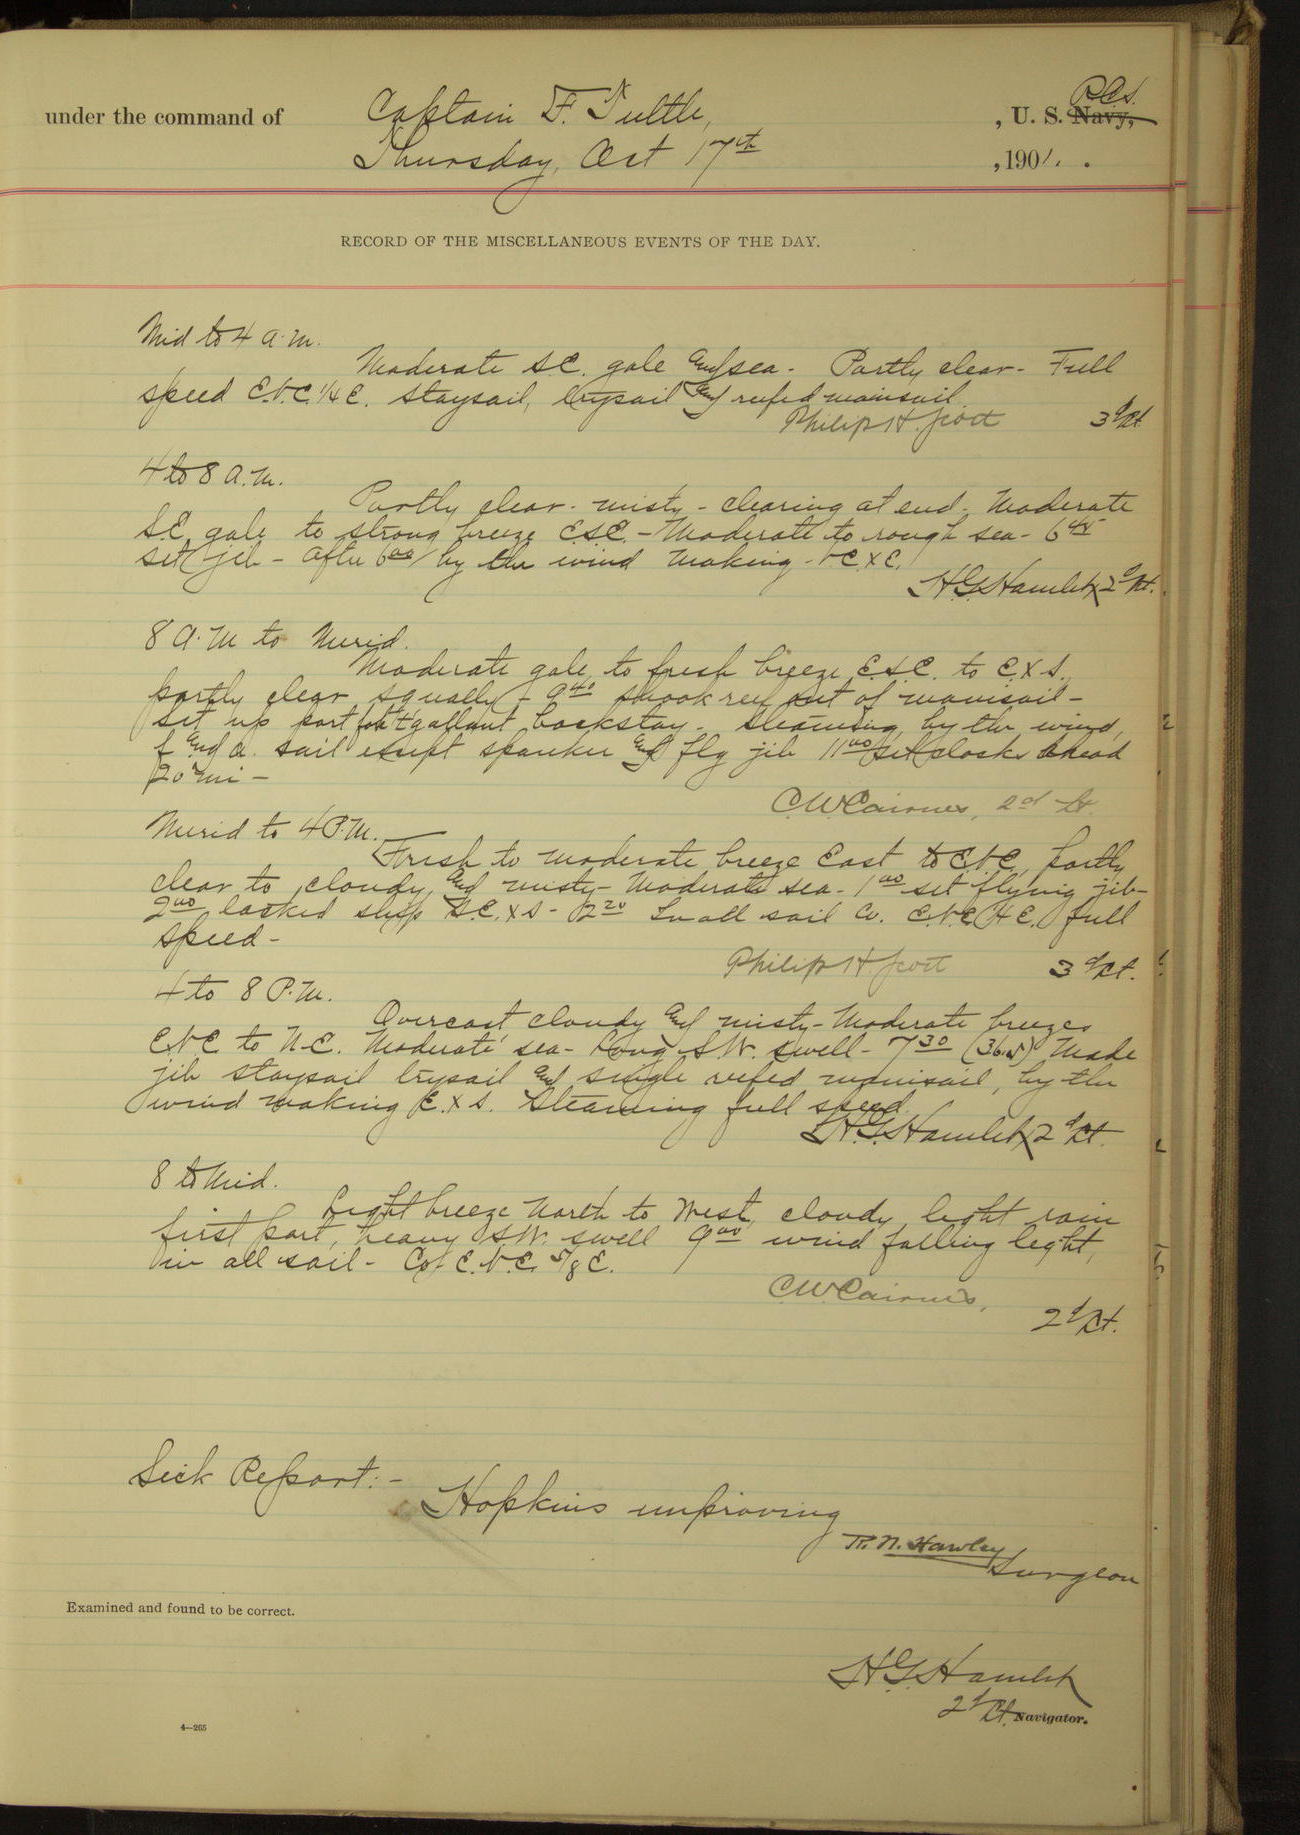 under the command of Captain F. Tuttle, , U. S. R.C.S. Navy,
Thursday, Oct 17th ,1901. .
RECORD OF THE MISCELLANEOUS EVENTS OF THE DAY.
Mid to 4 a.m.
Moderate S.E. gale and sea - Partly clear - Full
speed E.N.E. 1/4 E. Staysail, trysail and reefed mainsail.
Philip H. Scott 3d Lt.
4 to 8 A.M.
Partly clear - misty - clearing at end. Moderate
S.E. gale to strong breeze ESE. - Moderate to rough sea - 6 45
set jib - after 6 00 by the wind making - N E x E.
H.G. Hamlet 2d Lt.
8 A.M to Merid.
Moderate gale to fresh breeze E.S.E. to E. x S.
partly clear squally - 9 40 shook reef out of mainsail -
set up port fore t'gallant backstay. Steaming by the wind,
f and a. sail except spanker and flg jib 11 00 set clocks ahead
20 mi -
C.W. Cairnes, 2nd Lt.
Merid to 4 P.M.
Fresh to moderate breeze East to E.N.E, partly
clear to cloudy and misty - Moderate sea - 1 00 set flying jib -
2 00 tacked ship S.E. x S - 2 20 In all sail Co. E.N.E 1/4 E. full
speed -
Philip H. Scott 3d Lt.
4 to 8 P.M.
Overcast cloudy and misty - Moderate breezes
E.N.E to N.E. Moderate sea - Long S.W. swell - 7 30 (36.5) Made
jib staysail trysail and single reefed mainsail, by the
wind making E. x S. Steaming full speed.
H.G. Hamlet 2d Lt.
8 to Mid.
Light breeze North to West, cloudy, light rain
first part, heavy S.W. swell 9 00 wind falling light,
in all sail - Co. E.N.E. 5/8 E.
C.W. Cairnes,
2d Lt.
Sick Report: -
Hopkins improving
R. N. Hawley
Surgeon
Examined and found to be correct.
H G Hamlet
2d Lt. Navigator.
4—265